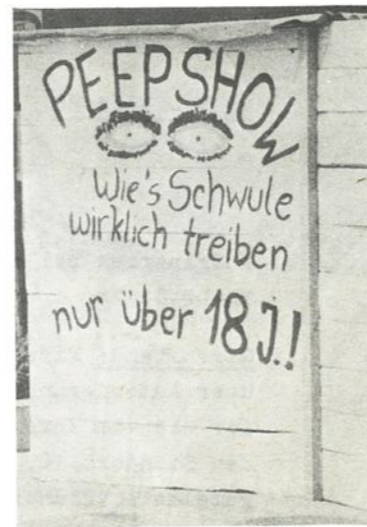 PEEPSHOW
Wie's Schwule
wirklich treiben
nur über 18 J.!